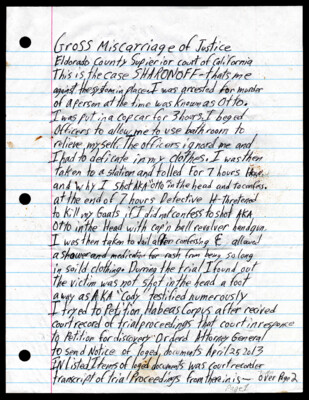 Gross Miscarriage of Justice
Eldorado County Superior court of California
This is the case SHARONOFF - thats me
against the system in place. I was arrested for murder
of a person at the time was Known as Otto.
I was put in a cop car for 3 hours, I beged
Officers to allow me to use bathroom to
relieve myself. The officers ignord me and
I had to deficate in my clothes. I was then
taken to a station and tolled for 7 hours
and why I shot AKA "Otto in the head and to confess.
at the end of 7 hours Detective H- Threatened
to Kill my Goats if I did not confess to shot AKA
Otto in the Head with cap n ball revolver handgun.
I was then taken to Jail after confessing & allowed
a shower and medicator for rash from being so long
in soild clothing. During the trial I found out
the victim was not shot in the head a foot
away as AKA "Cody" testified numerously
I tryed to Petition Habeas Corpus after recived
court record of trial proceedings that court in responce
to Petition for discovery Orderd Attorney General
to send Notice of loged documents April 25 2013
IN listed Items of loged documents was court recorder
transcript of trial Proceedings from there in is - over Page 2
Page 1